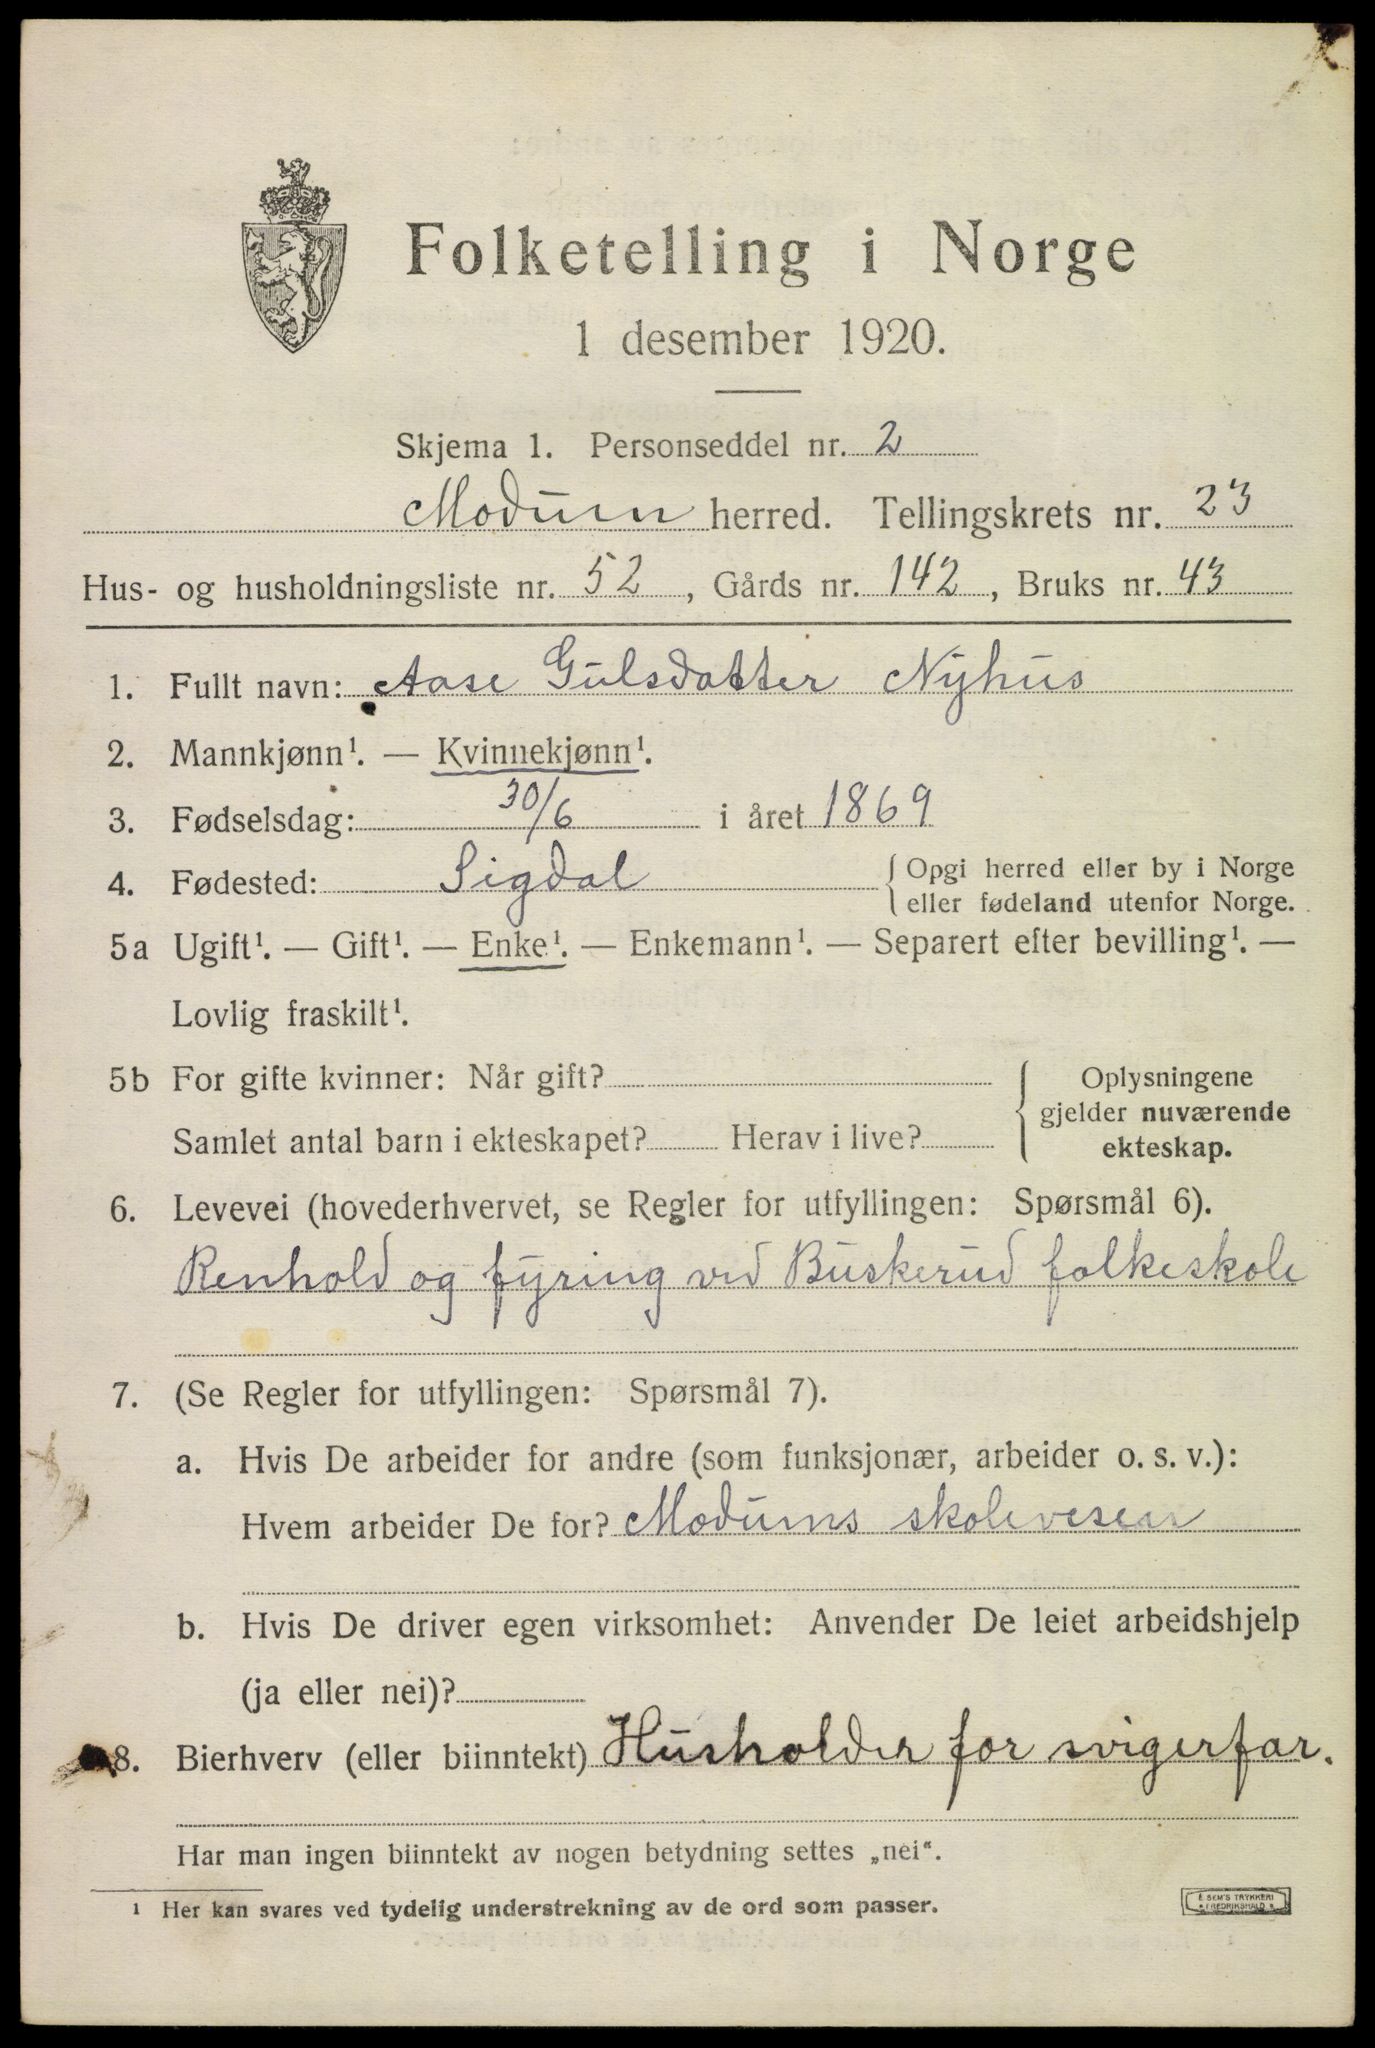 Folketelling i Norge
1 desember 1920.
Skjema 1. Personseddel nr. 2
Modum herred. Tellingskrets nr. 23
Hus- og husholdningsliste nr. 52, Gårds nr. 142, Bruks nr. 43
1. Fullt navn: Aase Gulsdatter Nyhus
2. Mannkjønn¹. — Kvinnekjønn¹.
3. Fødselsdag: 30/6 i året 1869
4. Fødested: Sigdal { Opgi herred eller by i Norge
eller fødeland utenfor Norge.
5a Ugift¹. — Gift¹. — Enke¹. — Enkemann¹. — Separert efter bevilling¹. —
Lovlig fraskilt¹.
5b For gifte kvinner: Når gift? { Oplysningene
gjelder nuværende
Samlet antal barn i ekteskapet? Herav i live? ekteskap.
6. Levevei (hovederhvervet, se Regler for utfyllingen: Spørsmål 6).
Renhold og fyring ved Buskerud folkeskole
7. (Se Regler for utfyllingen: Spørsmål 7).
a. Hvis De arbeider for andre (som funksjonær, arbeider o. s. v.):
Hvem arbeider De for? Modums skolevesen
b. Hvis De driver egen virksomhet: Anvender De leiet arbeidshjelp
(ja eller nei)?
8. Bierhverv (eller biinntekt) Husholder for svigerfar.
Har man ingen biinntekt av nogen betydning settes „nei“.
¹ Her kan svares ved tydelig understrekning av de ord som passer.
E SEM'S TRYKKERI
FREDRIKSHALD